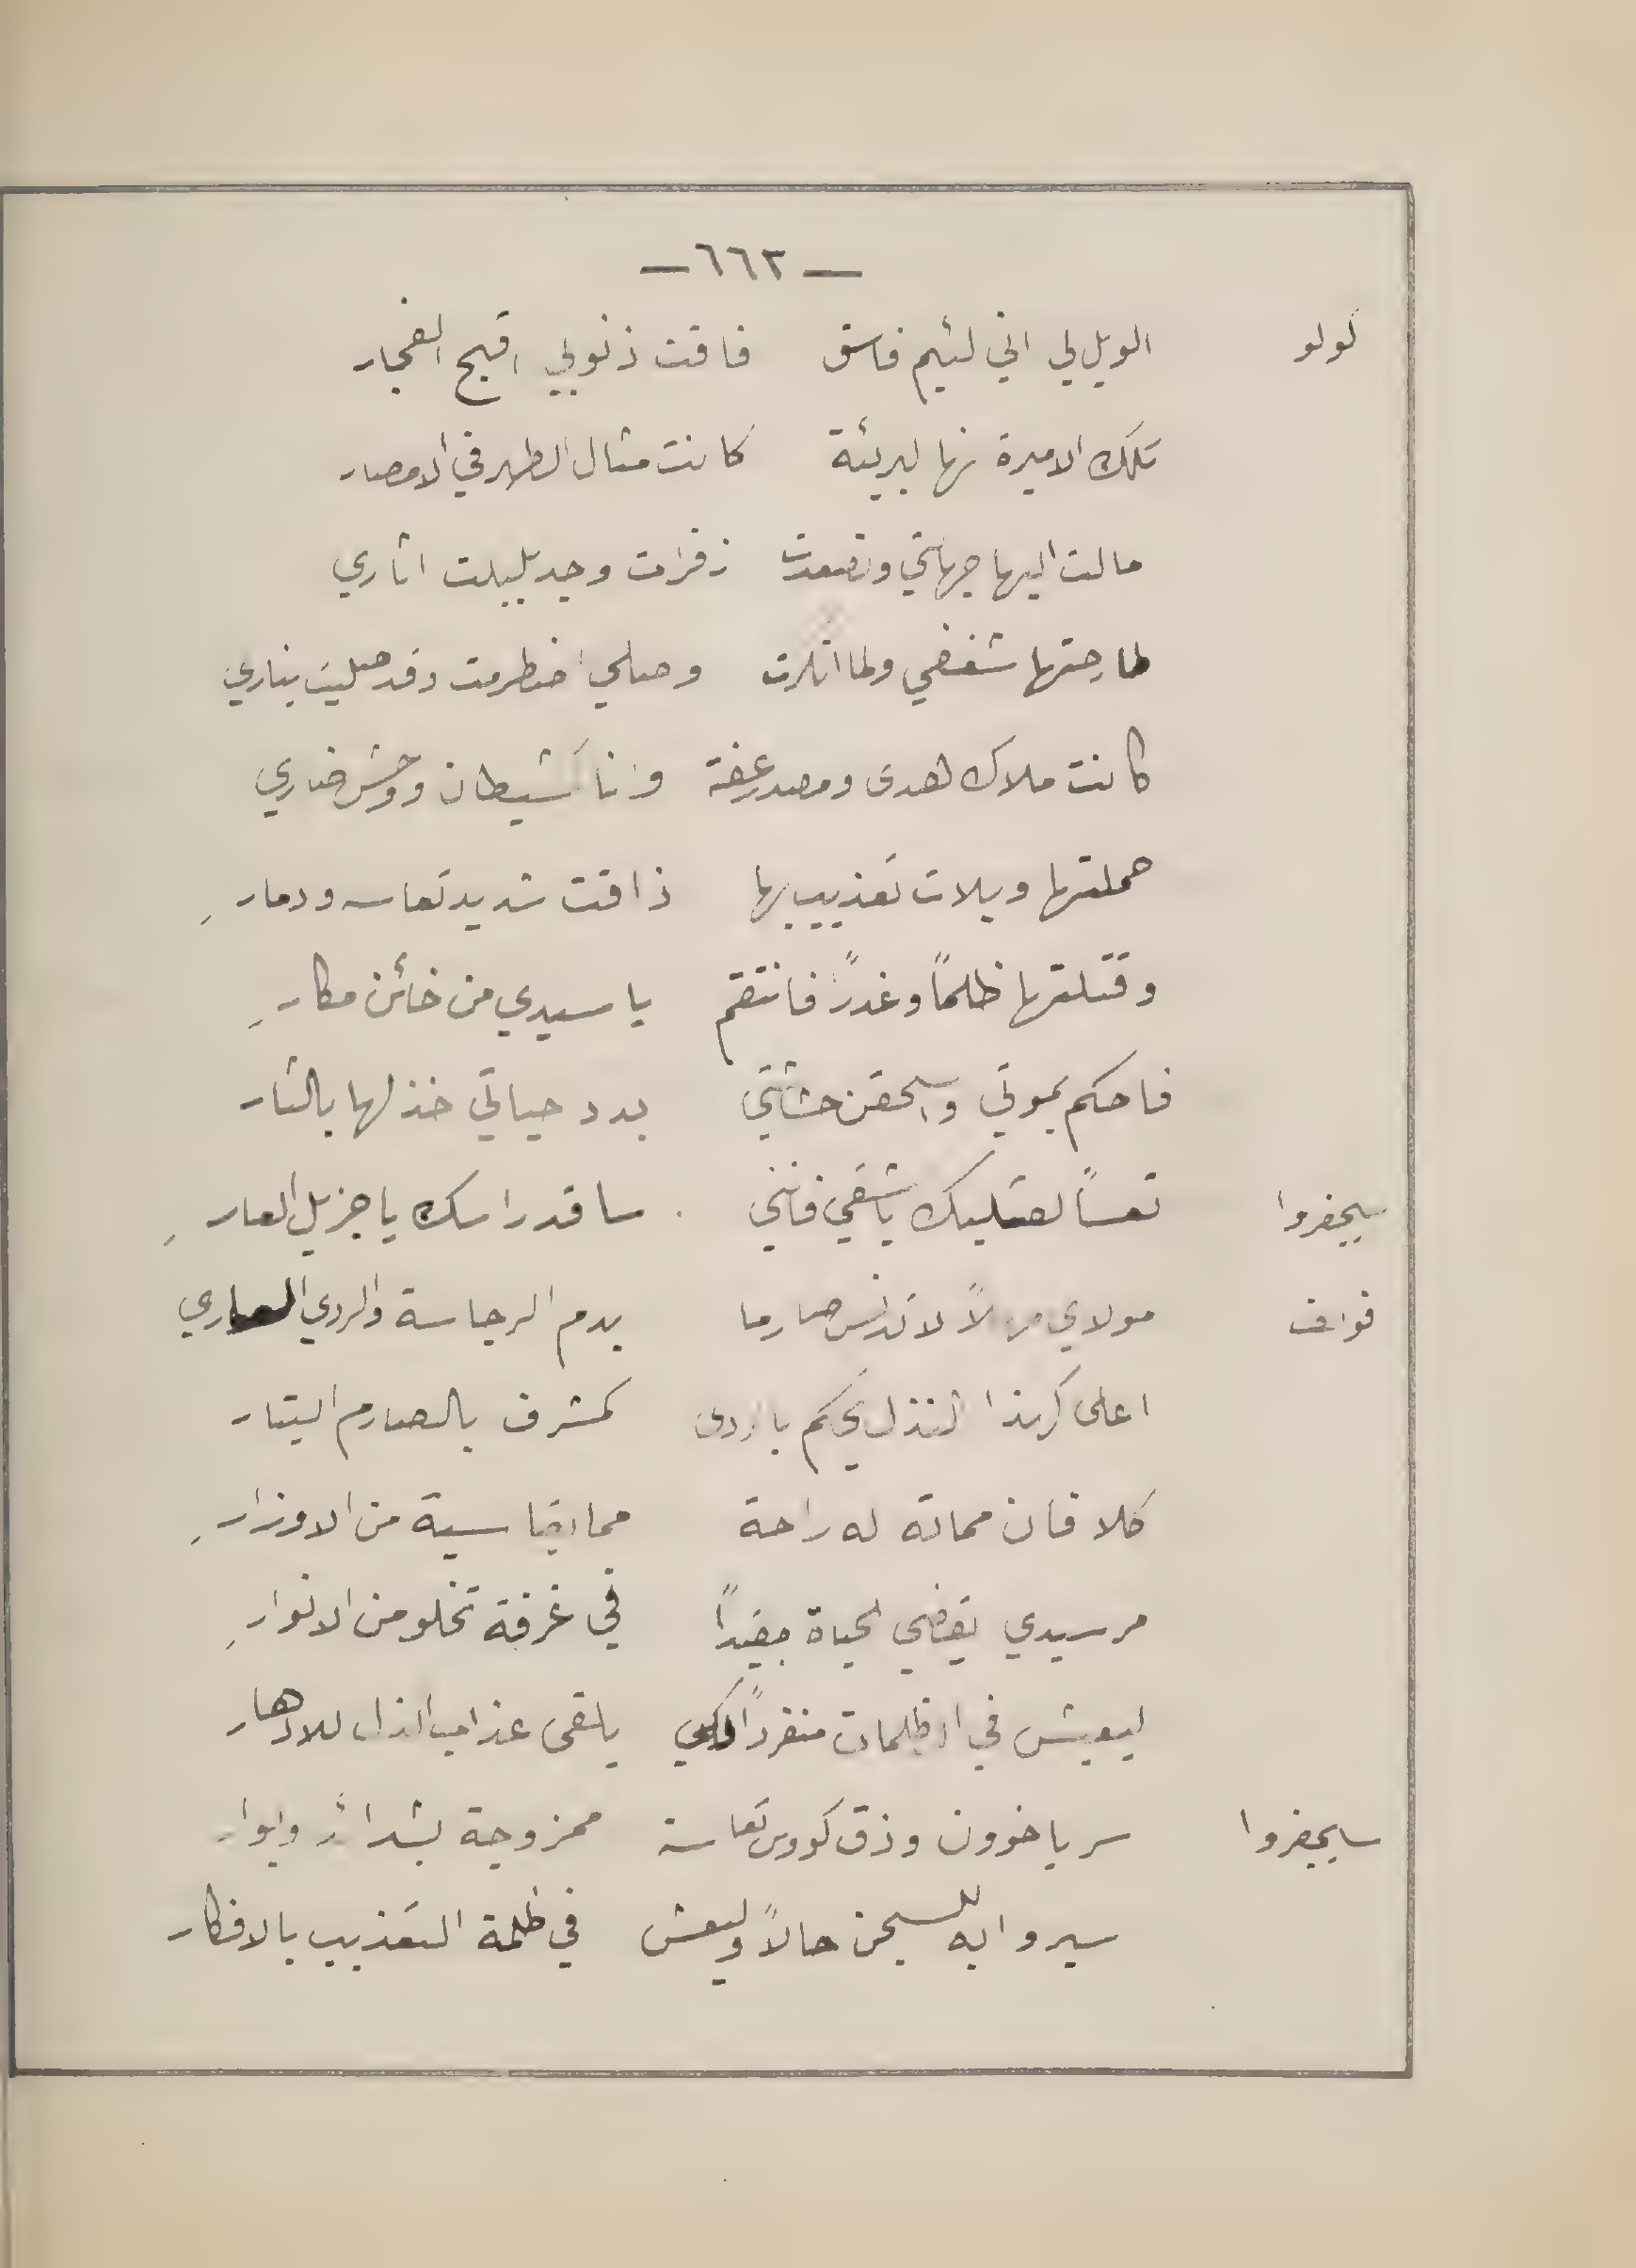 — ٦٦٢ —
لولو الويل لي اني لئيم فاسق فاقت ذنوبي اقبح الفجار
تلك الاميرة انها لبريئة كانت مثال الطهر في الامصار
مالت اليها مهجتي وتصعدت زفرات وجد بلبلت اثاري
طارحتها شغفي ولما انكرت وصلي اضطرمت وقد صليت بناري
كانت ملاك هدى ومصدر عفة وانا كشيطان ووحش ضاري
حملتها ويلات تعذيب بها ذاقت شديد تعاسه ودمارِ
وقتلتها ظلماً وغدرًا فانتقم يا سيدي من خائن مكارِ
فاحكم بموتي واسحقن حشاشتي بدد حياتي خذ لها بالثار
سيجفروا تعساً لعقليك يا شقي فانني ساقد راسك يا جزيل العارِ
قواف مولاي مهلاً لا تدنس صارما بدم الرجاسة والردي العاري
اعلى كهذا النذل يحكم بالردى كمشرف بالصارم البتار
كلا فان مماته له راحة مما يقاسية من الاوزارِ
مر سيدي يقضي الحياة مقيداً في غرفة تخلو من الانوارِ
ليعيش في الظلمات منفرداً لكي يلقى عذاب الذل للادهار
سايجفروا سر يا خوون وذق كووس تعاسة ممزوجة بشدائد وبوار
سيروا به للسجن حالاً وليعش في ظلمة التعذيب بالافكار